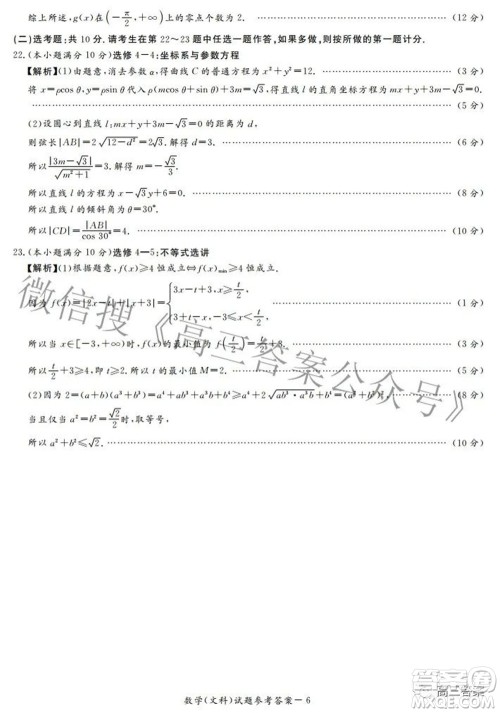 综上所述,g(x)在(-π/2,+∞)上的零点个数为2. (12分)
(二)选考题:共10分.请考生在第22~23题中任选一题作答,如果多做,则按所做的第一题计分.
22.(本小题满分10分)选修4-4:坐标系与参数方程
【解析】(1)由题意,消去参数α,得曲线C的普通方程为x²+y²=12. (3分)
将x=ρcosθ,y=ρsinθ代入ρ(mcosθ+sinθ)+3m=√3,得直线l的直角坐标方程为mx+y+3m-√3=0.
(5分)
(2)设圆心到直线l:mx+y+3m-√3=0的距离为d,
则弦长|AB|=2√(12-d²)=2√3,解得d=3. (6分)
所以|3m-√3|/√(m²+1)=3,解得m=-√3/3.
所以直线l的方程为x-√3y+6=0. (8分)
所以直线l的倾斜角为θ=30°.
所以|CD|=|AB|/cos30°=4. (10分)
23.(本小题满分10分)选修4-5:不等式选讲
【解析】(1)根据题意,f(x)≥4恒成立⇔f(x)min≥4恒成立.
因为f(x)=|2x-t|+|x+3|= 3x-t+3,x≥t/2
3+t-x,-3≤x≤t/2 (1分)
所以当x∈[-3,+∞)时,f(x)的最小值为f(t/2)=t/2+3. (3分)
所以t/2+3≥4,即t≥2,所以t的最小值M=2. (5分)
(2)因为2=(a+b)(a³+b³)=a⁴+ab³+a³b+b⁴≥a⁴+2√(ab³·a³b)+b⁴=(a²+b²)², (8分)
当且仅当a=b=√2/2时,取等号,
所以a²+b²≤√2. (10分)
微信搜《高三答案公众号》
数学(文科)试题参考答案-6
高三答案